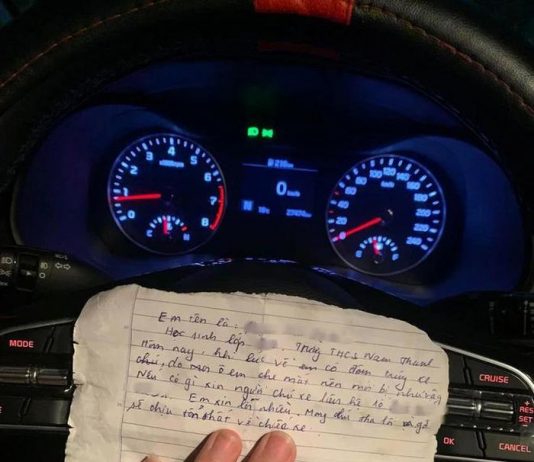 4
3
5
2
6
x1000rpm
1
7
0
8
C
H
0
km/h
N
km/h
100
120
140
80
160
60
180
40
200
20
220
0
240
MODE
CRUISE
+
RES
SET
-
OK
CANCEL
Em tên là:
Học sinh lớp Trường THCS Nam Thanh
Hôm nay, khi lúc về em có đâm trúng xe
chú, do em che mắt nên mới bị như vậy
Nếu có gì xin người chủ xe liên hệ số
Em xin lỗi nhiều, Mong chú tha lỗi và gđ
sẽ chịu tổn thất về chiếc xe.